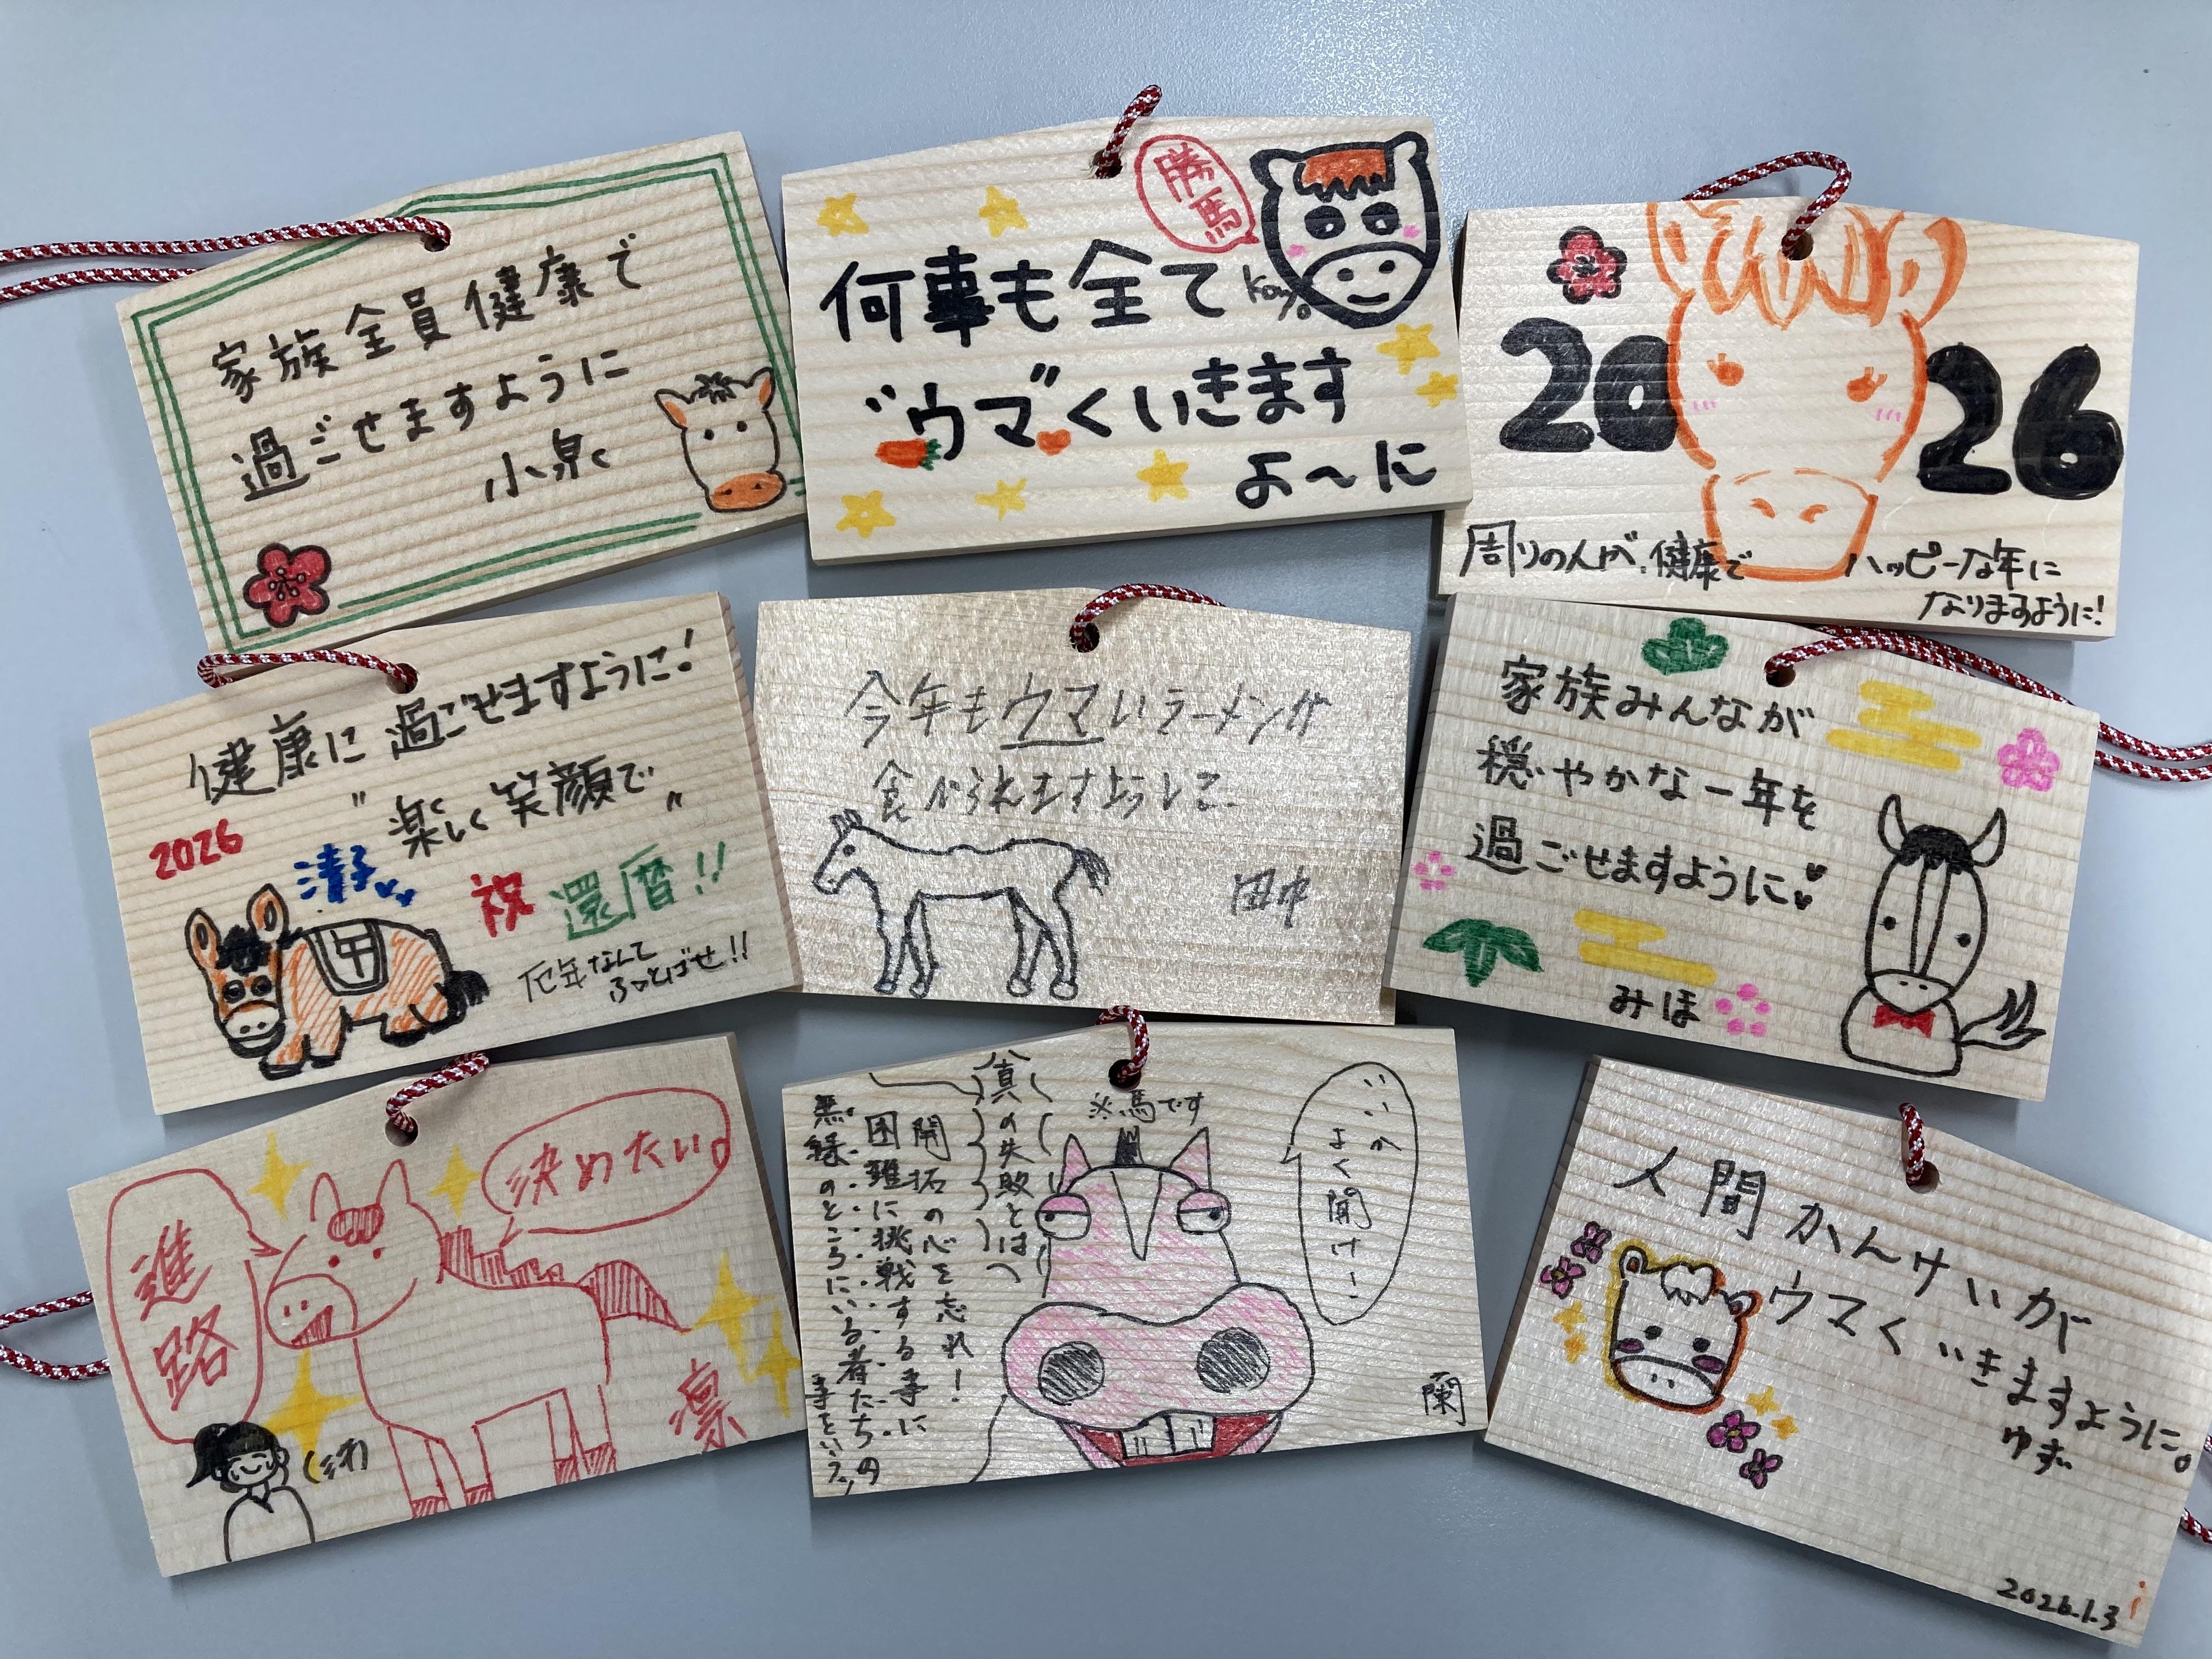 家族全員健康で
過ごせますように
小泉
勝馬
何事も全て
"ウマ"くいきます
よ〜に
2026
周りの人が、健康で ハッピーな年に
なりますように!
健康に過ごせますように!
"楽しく笑顔で"
2026
清子
祝 還暦!!
午
厄年なんて
ふっとばせ!!
今年もウマいラーメンが
食べられますように
田中
家族みんなが
穏やかな一年を
過ごせますように
みほ
進路
決めたい。
凛
※馬です
いいか
よく聞けー
真の失敗とは
開拓の心を忘れ!
困難に挑戦する事に
無縁のところにいる者たちの
事をいう
蘭
人間かんけいが
ウマくいきますように。
ゆず
2026.1.3